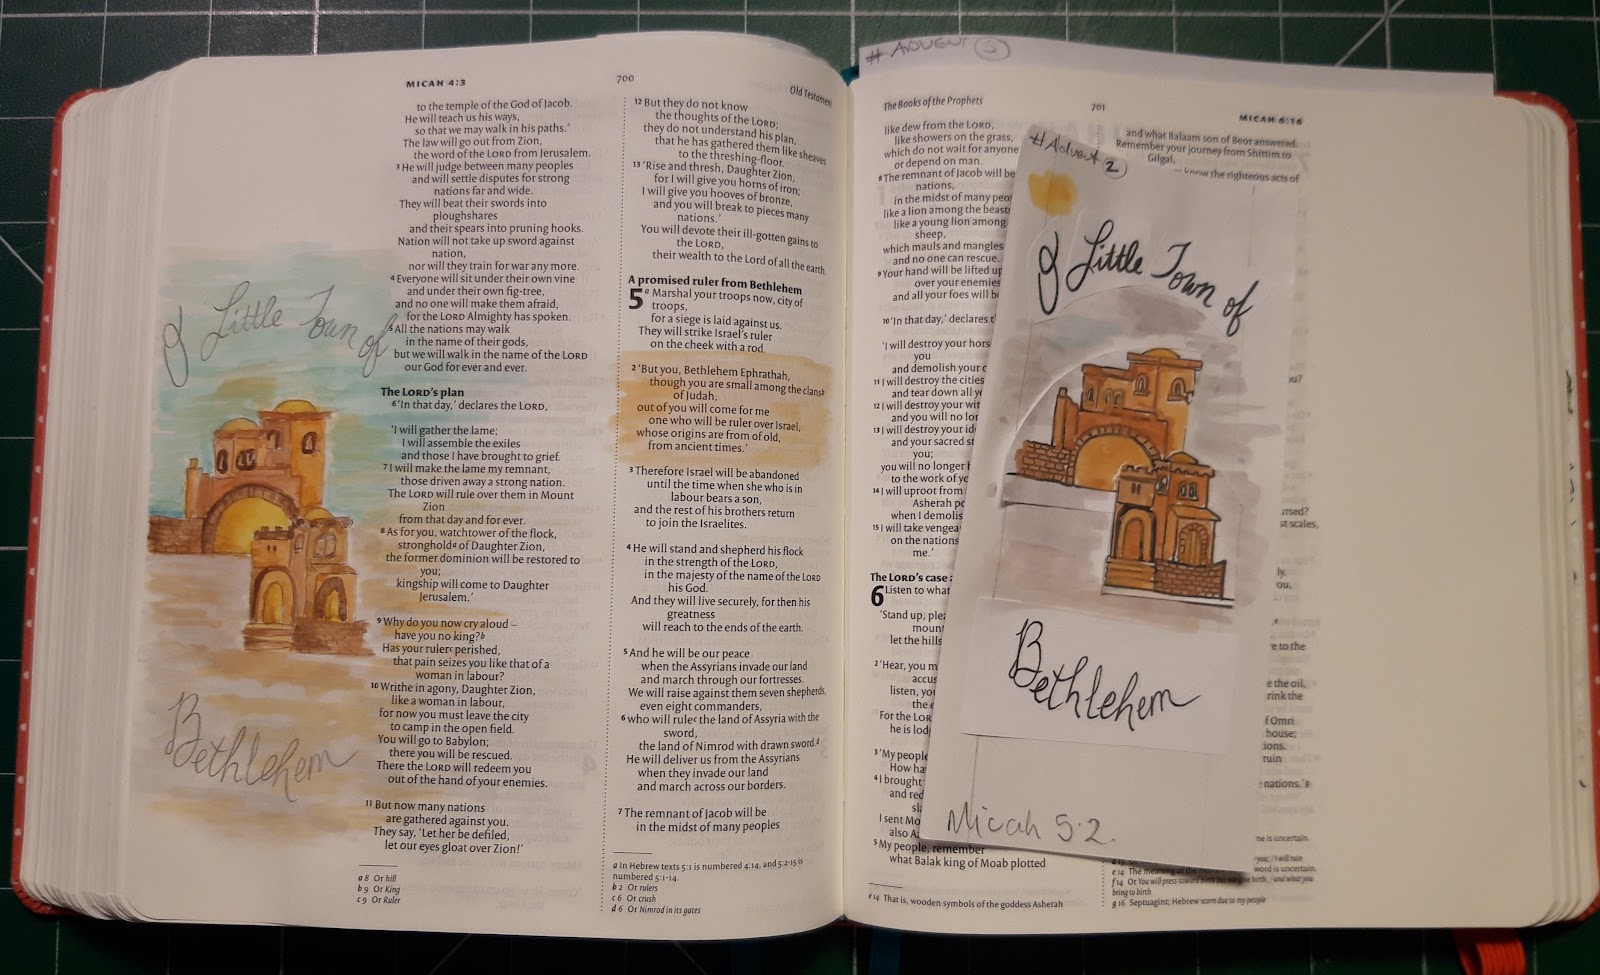 MICAH 4:3
700
Old Testament
to the temple of the God of Jacob.
He will teach us his ways,
so that we may walk in his paths.’
The law will go out from Zion,
the word of the LORD from Jerusalem.
3 He will judge between many peoples
and will settle disputes for strong
nations far and wide.
They will beat their swords into
ploughshares
and their spears into pruning hooks.
Nation will not take up sword against
nation,
nor will they train for war any more.
4 Everyone will sit under their own vine
and under their own fig-tree,
and no one will make them afraid,
for the LORD Almighty has spoken.
5 All the nations may walk
in the name of their gods,
but we will walk in the name of the LORD
our God for ever and ever.
The LORD’s plan
6 ‘In that day,’ declares the LORD,
‘I will gather the lame;
I will assemble the exiles
and those I have brought to grief.
7 I will make the lame my remnant,
those driven away a strong nation.
The LORD will rule over them in Mount
Zion
from that day and for ever.
8 As for you, watchtower of the flock,
stronghold a of Daughter Zion,
the former dominion will be restored to
you;
kingship will come to Daughter
Jerusalem.’
9 Why do you now cry aloud –
have you no king? b
Has your ruler c perished,
that pain seizes you like that of a
woman in labour?
10 Writhe in agony, Daughter Zion,
like a woman in labour,
for now you must leave the city
to camp in the open field.
You will go to Babylon;
there you will be rescued.
There the LORD will redeem you
out of the hand of your enemies.
11 But now many nations
are gathered against you.
They say, ‘Let her be defiled,
let our eyes gloat over Zion!’
a 8 Or hill
b 9 Or King
c 9 Or Ruler
O Little Town of
Bethlehem
12 But they do not know
the thoughts of the LORD;
they do not understand his plan,
that he has gathered them like sheaves
to the threshing-floor.
13 ‘Rise and thresh, Daughter Zion,
for I will give you horns of iron;
I will give you hooves of bronze,
and you will break to pieces many
nations.’
You will devote their ill-gotten gains to
the LORD,
their wealth to the Lord of all the earth.
A promised ruler from Bethlehem
5 a Marshal your troops now, city of
troops,
for a siege is laid against us.
They will strike Israel’s ruler
on the cheek with a rod.
2 ‘But you, Bethlehem Ephrathah,
though you are small among the clans b
of Judah,
out of you will come for me
one who will be ruler over Israel,
whose origins are from of old,
from ancient times.’
3 Therefore Israel will be abandoned
until the time when she who is in
labour bears a son,
and the rest of his brothers return
to join the Israelites.
4 He will stand and shepherd his flock
in the strength of the LORD,
in the majesty of the name of the LORD
his God.
And they will live securely, for then his
greatness
will reach to the ends of the earth.
5 And he will be our peace
when the Assyrians invade our land
and march through our fortresses.
We will raise against them seven shepherds,
even eight commanders,
6 who will rule c the land of Assyria with the
sword,
the land of Nimrod with drawn sword. d
He will deliver us from the Assyrians
when they invade our land
and march across our borders.
7 The remnant of Jacob will be
in the midst of many peoples
a In Hebrew texts 5:1 is numbered 4:14, and 5:2-15 is
numbered 5:1-14.
b 2 Or rulers
c 6 Or crush
d 6 Or Nimrod in its gates
#ADVENT
The Books of the Prophets
701
MICAH 6:16
like dew from the LORD,
like showers on the grass,
which do not wait for anyone
or depend on man.
8 The remnant of Jacob will be
nations,
in the midst of many
like a lion among the beasts
like a young lion among
sheep,
which mauls and mangles
and no one can rescue.
9 Your hand will be lifted up
over your enemies
and all your foes will b
10 ‘In that day,’ declares
‘I will destroy your hors
you
and demolish your
11 I will destroy the cities
and tear down all
12 I will destroy your wit
and you will no lon
13 I will destroy your
and your sacred st
you;
you will no longer
to the work of
14 I will uproot from
Asherah
when I demolis
15 I will take vengea
on the nations
me.’
The LORD’s case
6 Listen to what
‘Stand up,
mount
let the hills
2 ‘Hear, you m
accus
listen,
the
For the LOR
he is lod
3 ‘My people
How ha
4 I brought
and red
I sent Mo
also
5 My people, remember
what Balak king of Moab plotted
e 14 That is, wooden symbols of the goddess Asherah
and what Balaam son of Beor answered.
Remember your journey from Shittim to
Gilgal,
know the righteous acts of
ou?
ursed?
st scales,
ly,
ou,
e to the
e the oil,
rink the
f Omri
house;
ions.
ruin
nations.’ g
ne is uncertain.
word is uncertain.
e 14 The meaning of the
f 14 Or You will press toward birth but not give birth, / and what you
bring to birth
g 16 Septuagint; Hebrew scorn due to my people
#Advent 2
O Little Town of
Bethlehem
Micah 5:2.